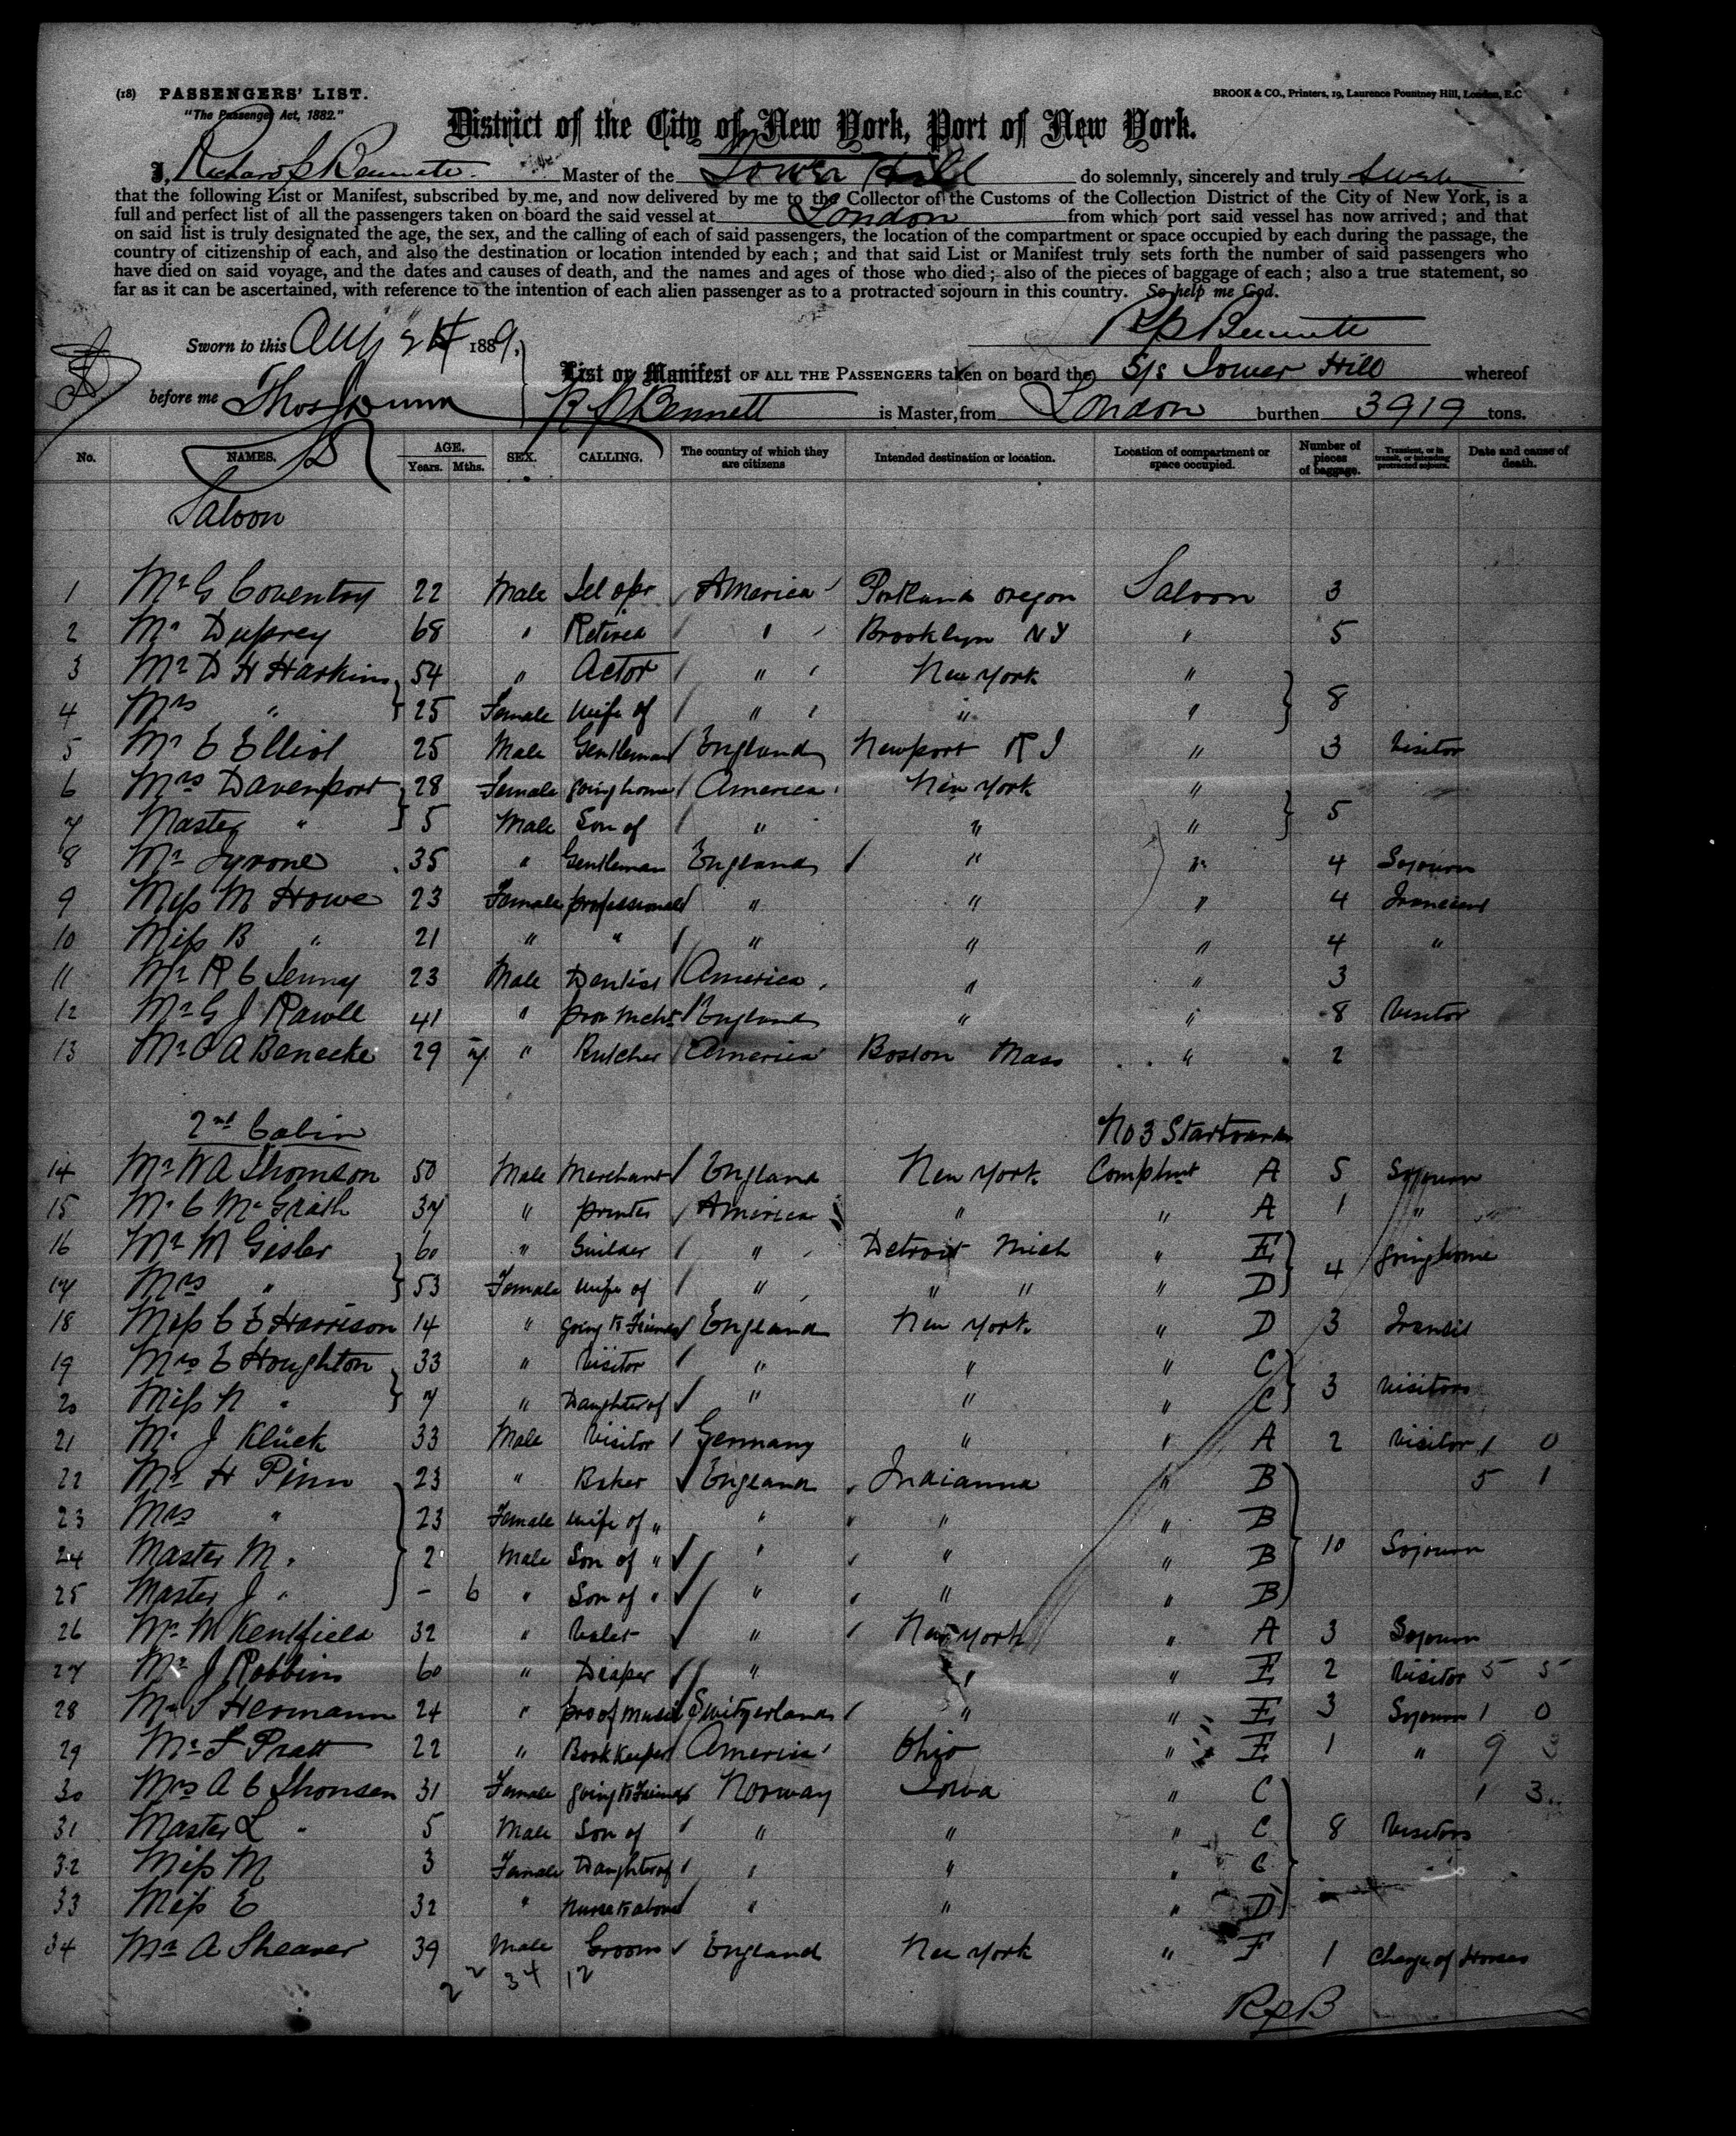 (18) PASSENGERS' LIST. BROOK & CO., Printers, 19, Laurence Pountney Hill, London, E.C
"The Passenger Act, 1882."
District of the City of New York, Port of New York.
I, Richard P Bennett Master of the Tower Hill do solemnly, sincerely and truly Swear
that the following List or Manifest, subscribed by me, and now delivered by me to the Collector of the Customs of the Collection District of the City of New York, is a
full and perfect list of all the passengers taken on board the said vessel at London from which port said vessel has now arrived; and that
on said list is truly designated the age, the sex, and the calling of each of said passengers, the location of the compartment or space occupied by each during the passage, the
country of citizenship of each, and also the destination or location intended by each; and that said List or Manifest truly sets forth the number of said passengers who
have died on said voyage, and the dates and causes of death, and the names and ages of those who died; also of the pieces of baggage of each; also a true statement, so
far as it can be ascertained, with reference to the intention of each alien passenger as to a protracted sojourn in this country. So help me God.
R P Bennett
Sworn to this Aug 1889,
List or Manifest OF ALL THE PASSENGERS taken on board the S/s Tower Hill whereof
before me Thos Dunn R P Bennett is Master, from London burthen 3919 tons.
No. NAMES. AGE. Years. Mths. SEX. CALLING. The country of which they are citizens Intended destination or location. Location of compartment or space occupied. Number of pieces of baggage. Transient, or in transit, or intending protracted sojourn. Date and cause of death.
Saloon
1 Mr G Coventry 22 Male Tel opr America Portland oregon Saloon 3
2 Mr Duprey 68 " Retired " Brooklyn NY " 5
3 Mr D H Harkins 54 " Actor " New York "
4 Mrs " 25 Female Wife of " " " 8
5 Mr E Elliot 25 Male Gentleman England Newport R I " 3 Visitor
6 Mrs Davenport 28 Female going home America New York "
7 Master " 5 Male Son of " " " 5
8 Mr Tyrone 35 " Gentleman England " " 4 Sojourn
9 Miss M Howe 23 Female professional " " " 4 Transient
10 Miss B " 21 " " " " " 4 "
11 Mr R C Jenny 23 Male Dentist America " " 3
12 Mr G J Rawle 41 " prov Mcht England " " 8 Visitor
13 Mr O A Benecke 29 7 " Butcher America Boston Mass " 2
2nd Cabin No 3 Starboard
14 Mr W A Thomson 50 Male Merchant England New York Compmt A 5 Sojourn
15 Mr C McGrath 37 " printer America " " A 1 "
16 Mr M Gisler 60 " Builder " Detroit Mich " E
17 Mrs " 53 Female wife of " " " " D 4 going home
18 Miss C E Harrison 14 " going to Friends England New York " D 3 Transit
19 Mrs E Houghton 33 " Visitor " " " C
20 Miss N " 7 " Daughter of " " " C 3 Visitors
21 Mr J Klück 33 Male Visitor Germany " " A 2 Visitor 1 0
22 Mr H Pinn 23 " Baker England Indianna " B 5 1
23 Mrs " 23 Female wife of " " " " B
24 Master M " 2 Male Son of " " " " B 10 Sojourn
25 Master J " - 6 " Son of " " " " B
26 Mr M Kentfield 32 " Valet " New York " A 3 Sojourn
27 Mr J Robbins 60 " Draper " " " E 2 Visitor 5 5
28 Mr S Hermann 24 " pro of music Switzerland " " E 3 Sojourn 1 0
29 Mr F Pratt 22 " Book Keeper America Ohio " E 1 " 9 3
30 Mrs A C Thonsen 31 Female going to Friends Norway Iowa " C 1 3
31 Master L " 5 Male Son of " " " C 8 Visitors
32 Miss M 3 Female Daughter of " " " C
33 Miss E 32 " Nurse to above " " " D
34 Mr A Sheaver 39 Male Groom England New York " F 1 Charge of Horses
2 2 34 12
R P B